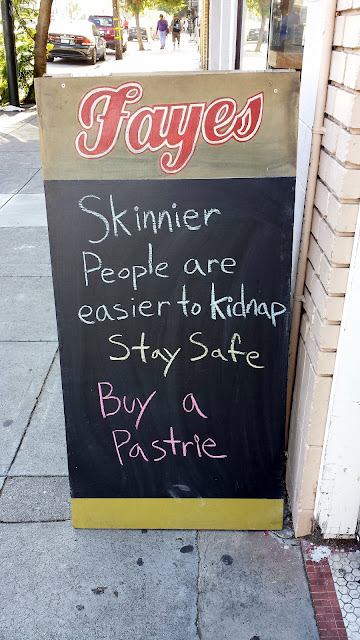 Fayes
Skinnier
People are
easier to kidnap
Stay Safe
Buy a
Pastrie